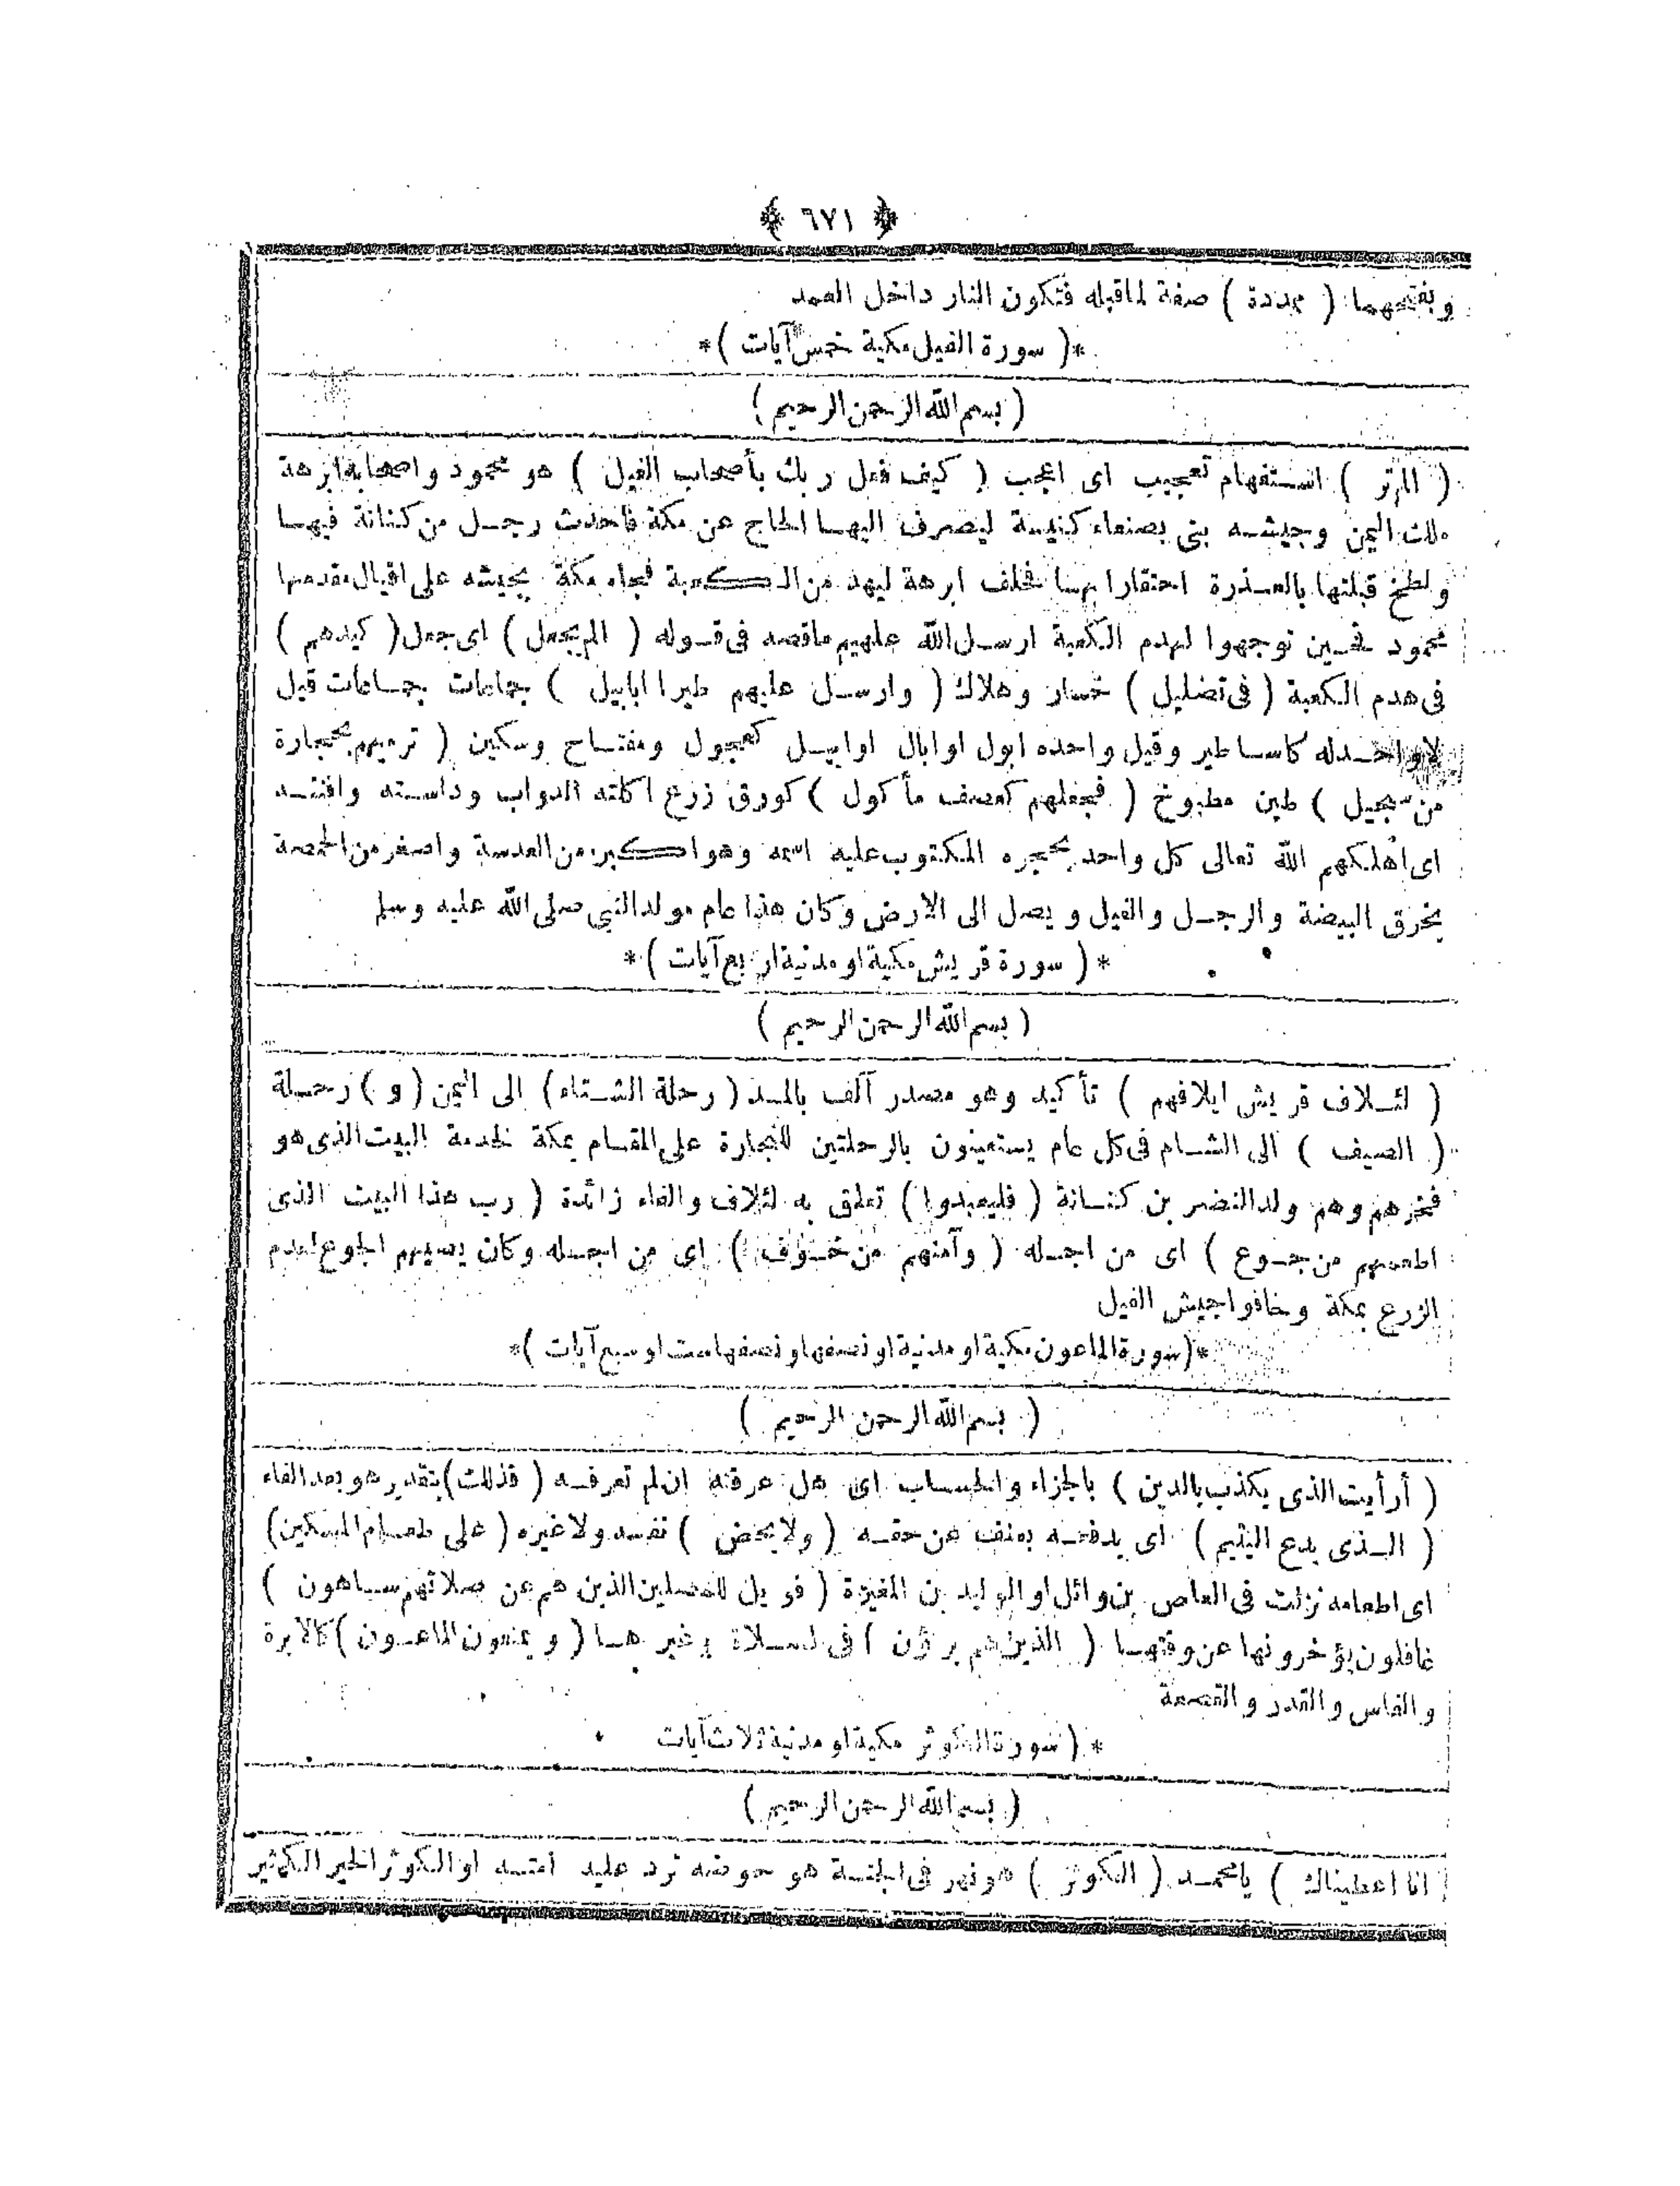 ﴿ ٦٧١ ﴾
وبفتحهما ( ممددة ) صفة لما قبله فتكون النار داخل العمد
*( سورة الفيل مكية خمس آيات )*
( بسم الله الرحمن الرحيم )
( الم تر ) استفهام تعجيب اى اعجب ( كيف فعل ربك بأصحاب الفيل ) هو محمود واصحابه ابرهة
ملك اليمن وجيشه بنى بصنعاء كنيسة ليصرف اليها الحاج عن مكة فاحدث رجل من كنانة فيها
ولطخ قبلتها بالعذرة احتقارا بها فحلف ابرهة ليهدمن الكعبة فجاء مكة بجيشه على افيال مقدمها
محمود فحين توجهوا لهدم الكعبة ارسل الله عليهم ماقصه فى قوله ( الم يجعل ) اى جعل ( كيدهم )
فى هدم الكعبة ( فى تضليل ) خسار وهلاك ( وارسل عليهم طيرا ابابيل ) جماعات جماعات قيل
لا واحد له كاساطير وقيل واحده ابول او ابال او ابيل كعجول ومفتاح وسكين ( ترميهم بحجارة
من سجيل ) طين مطبوخ ( فجعلهم كعصف مأكول ) كورق زرع اكلته الدواب وداسته وافنته
اى اهلكهم الله تعالى كل واحد بحجره المكتوب عليه اسمه وهو اكبر من العدسة واصغر من الحمصة
يخرق البيضة والرجل والفيل ويصل الى الارض وكان هذا عام مولد النبي صلى الله عليه وسلم
*( سورة قريش مكية او مدنية اربع آيات )*
( بسم الله الرحمن الرحيم )
( لئلاف قريش ايلافهم ) تأكيد وهو مصدر آلف بالمد ( رحلة الشتاء ) الى اليمن ( و ) رحلة
( الصيف ) الى الشام فى كل عام يستعينون بالرحلتين للتجارة على المقام بمكة لخدمة البيت الذى هو
فخرهم وهم ولد النضر بن كنانة ( فليعبدوا ) تعلق به لئلاف والفاء زائدة ( رب هذا البيت الذى
اطعمهم من جوع ) اى من اجله ( وآمنهم من خوف ) اى من اجله وكان يصيبهم الجوع لعدم
الزرع بمكة وخافوا جيش الفيل
*( سورة الماعون مكية او مدنية او نصفها ونصفها ست او سبع آيات )*
( بسم الله الرحمن الرحيم )
( أرأيت الذى يكذب بالدين ) بالجزاء والحساب اى هل عرفته ان لم تعرفه ( فذلك ) بتقدير هو بعد الفاء
( الذى يدع اليتيم ) اى يدفعه بعنف عن حقه ( ولا يحض ) نفسه ولا غيره ( على طعام المسكين )
اى اطعامه نزلت فى العاص بن وائل او الوليد بن المغيرة ( فويل للمصلين الذين هم عن صلاتهم ساهون )
غافلون يؤخرونها عن وقتها ( الذين هم يراؤن ) فى لصلاة وغيرها ( ويمنعون الماعون ) كالابرة
والفاس والقدر والقصعة
*( سورة الكوثر مكية او مدنية ثلاث آيات
( بسم الله الرحمن الرحيم )
( انا اعطيناك ) يا محمد ( الكوثر ) هو نهر فى الجنة هو حوضه ترد عليه امته او الكوثر الخير الكثير